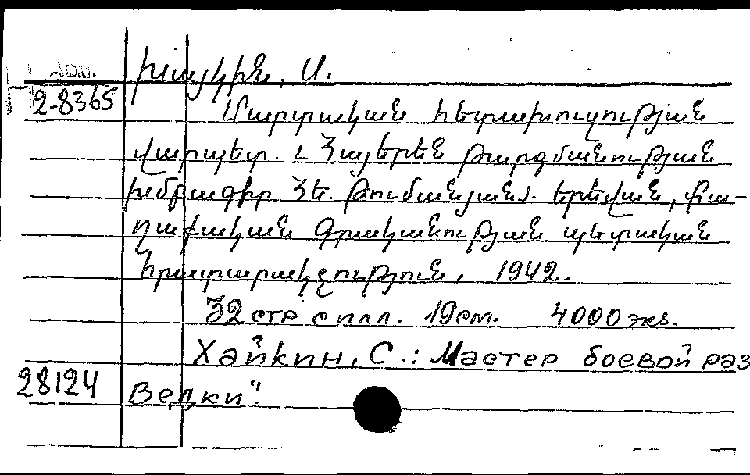 ADM.
Խայկին, Ս.
2-8365
Մարտական հետախուզության
վարպետ. Հայերեն թարգմանության
խմբագիր Հե. Թումանյան. Երևան, Քա-
ղաքական գրականության պետական
հրատարակչություն, 1942.
32 стр с илл. 19 см. 4000 экз.
Хайкин, С.: Мастер боевой раз
28124 ведки".